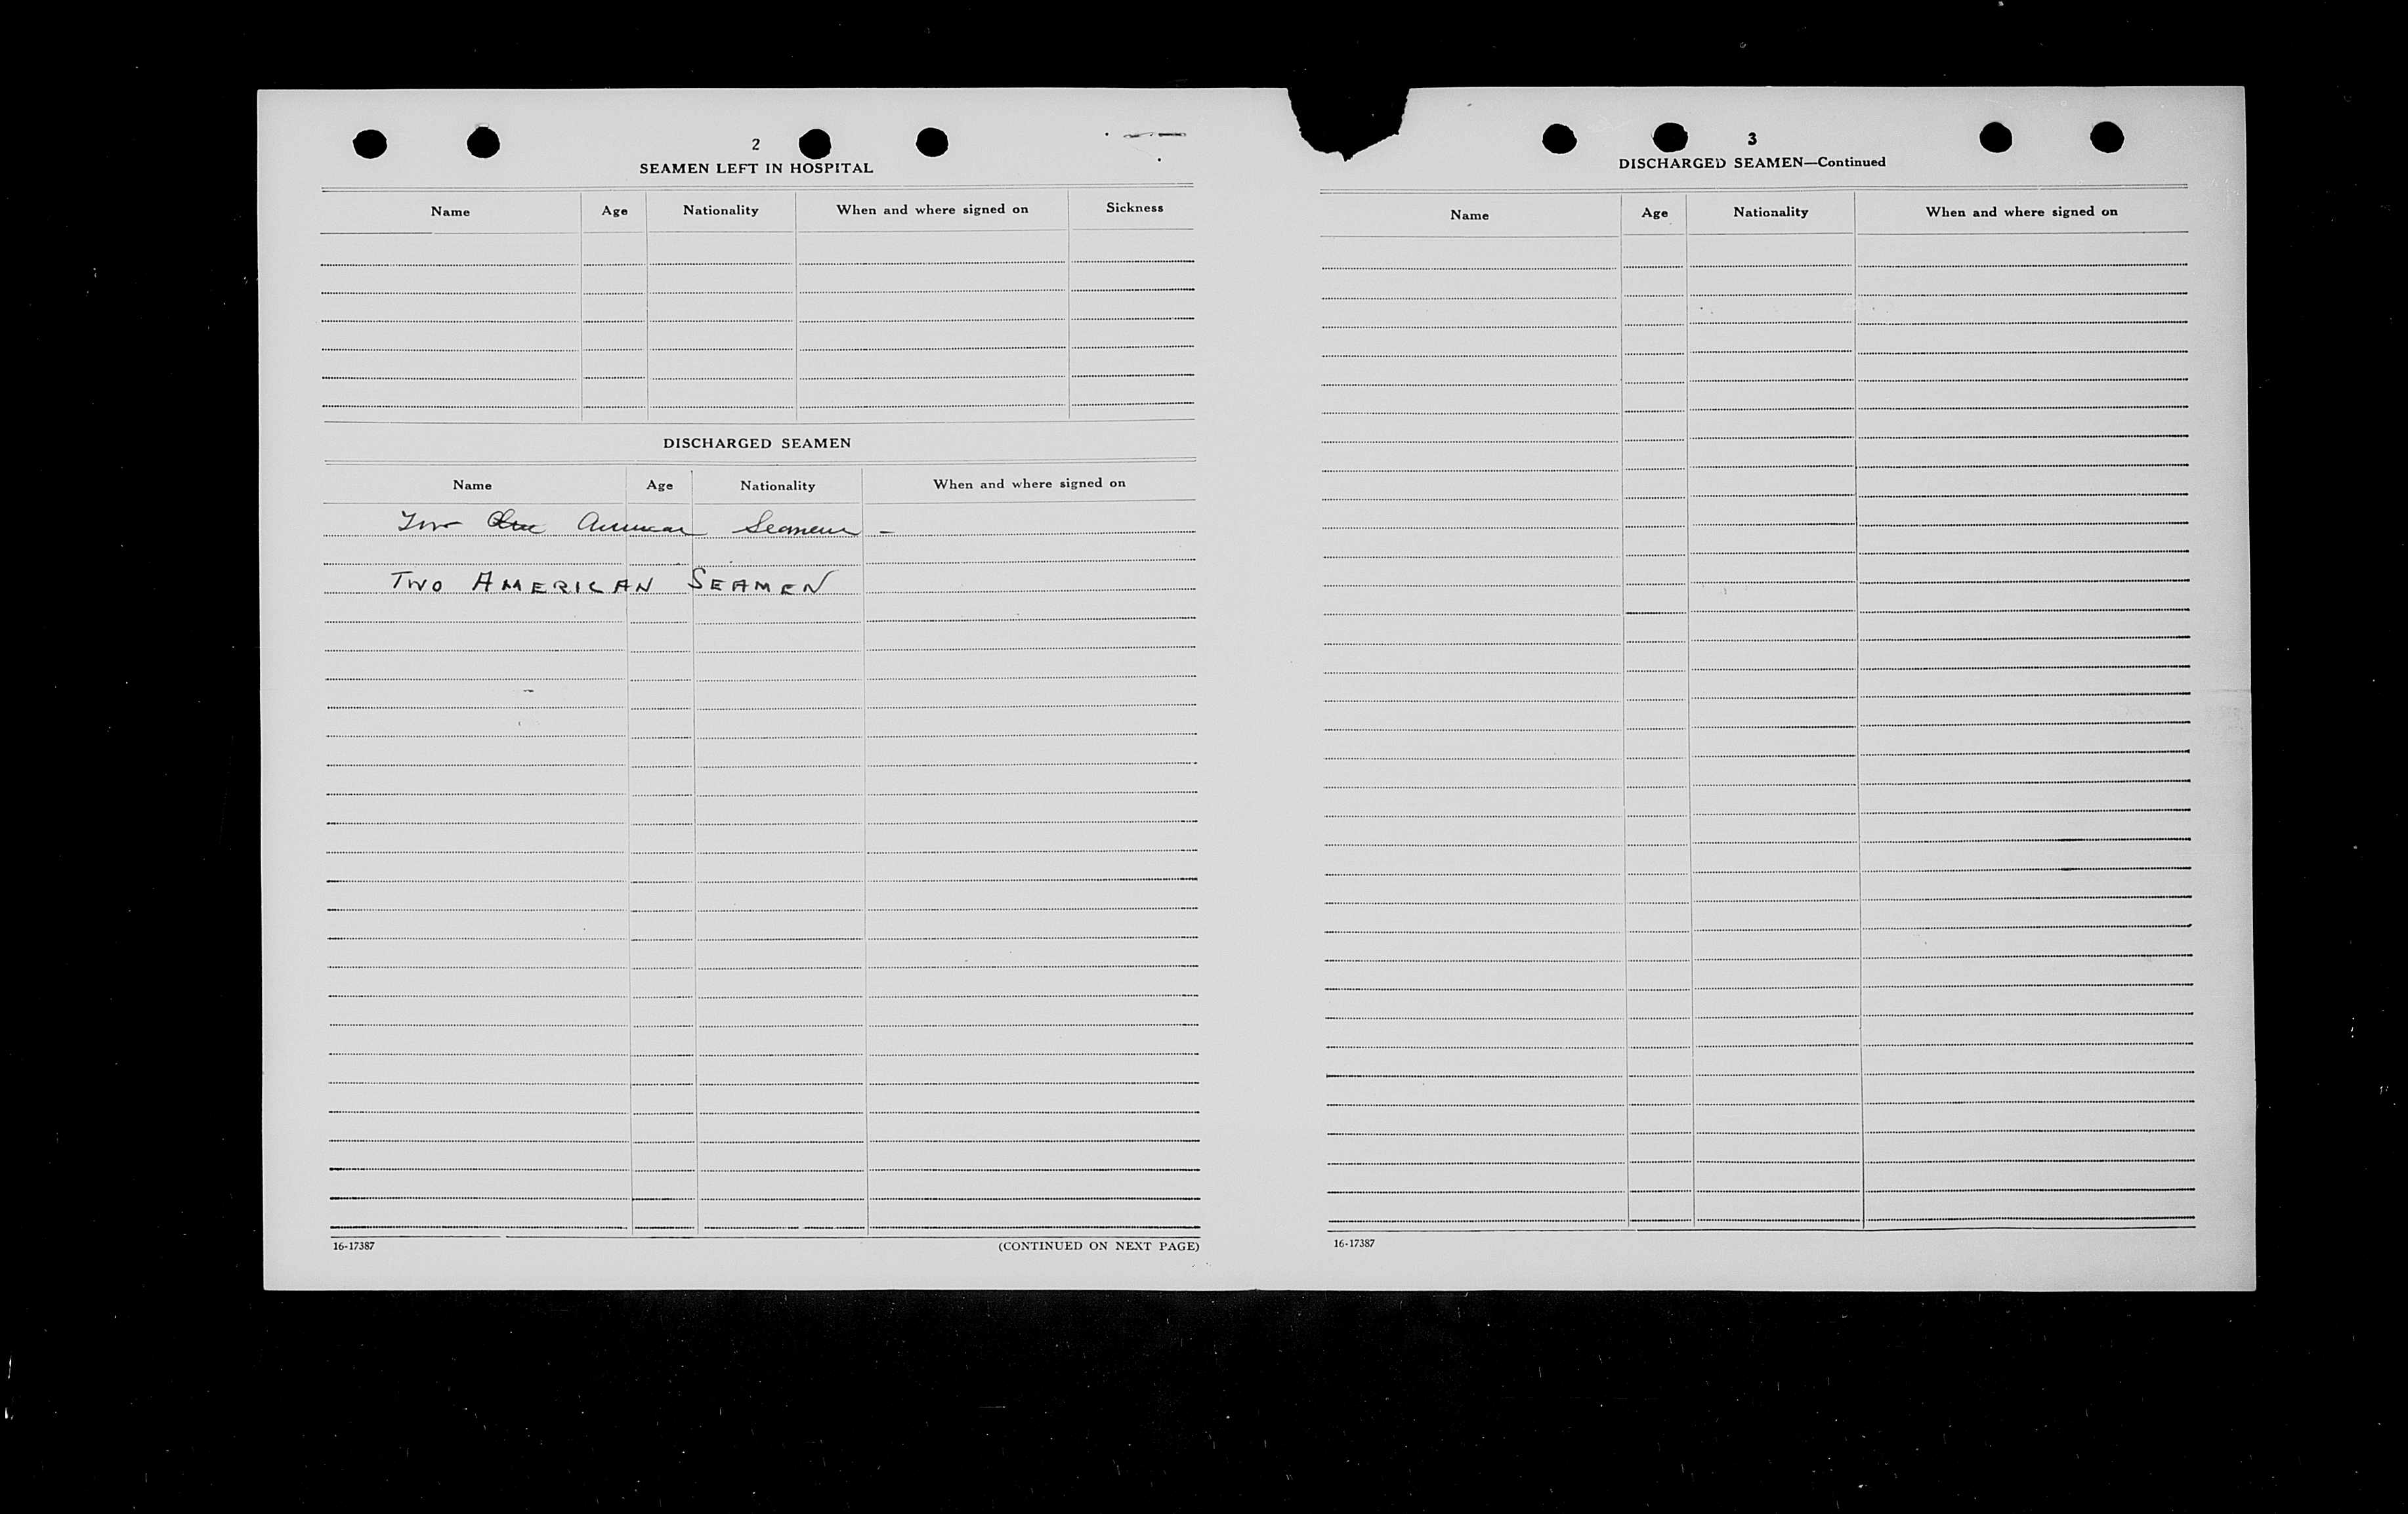 2
SEAMEN LEFT IN HOSPITAL
Name Age Nationality When and where signed on Sickness
DISCHARGED SEAMEN
Name Age Nationality When and where signed on
Two American Seamen -
TWO AMERICAN SEAMEN
16-17387 (CONTINUED ON NEXT PAGE)
3
DISCHARGED SEAMEN—Continued
Name Age Nationality When and where signed on
16-17387